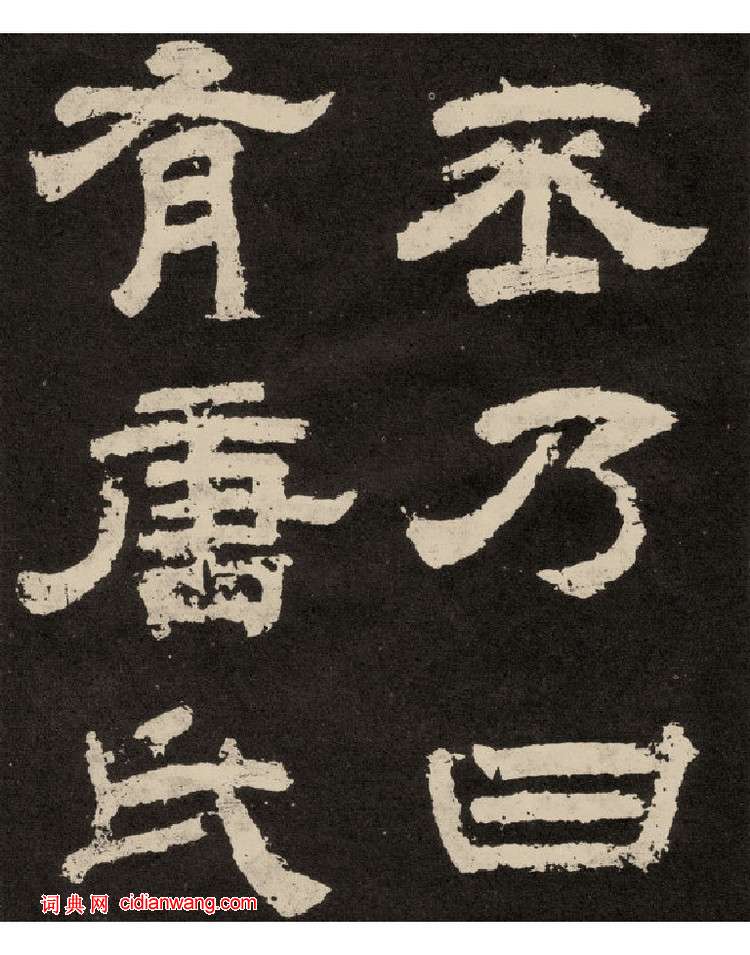 丕乃曰
有唐氏
词典网 cidianwang.com